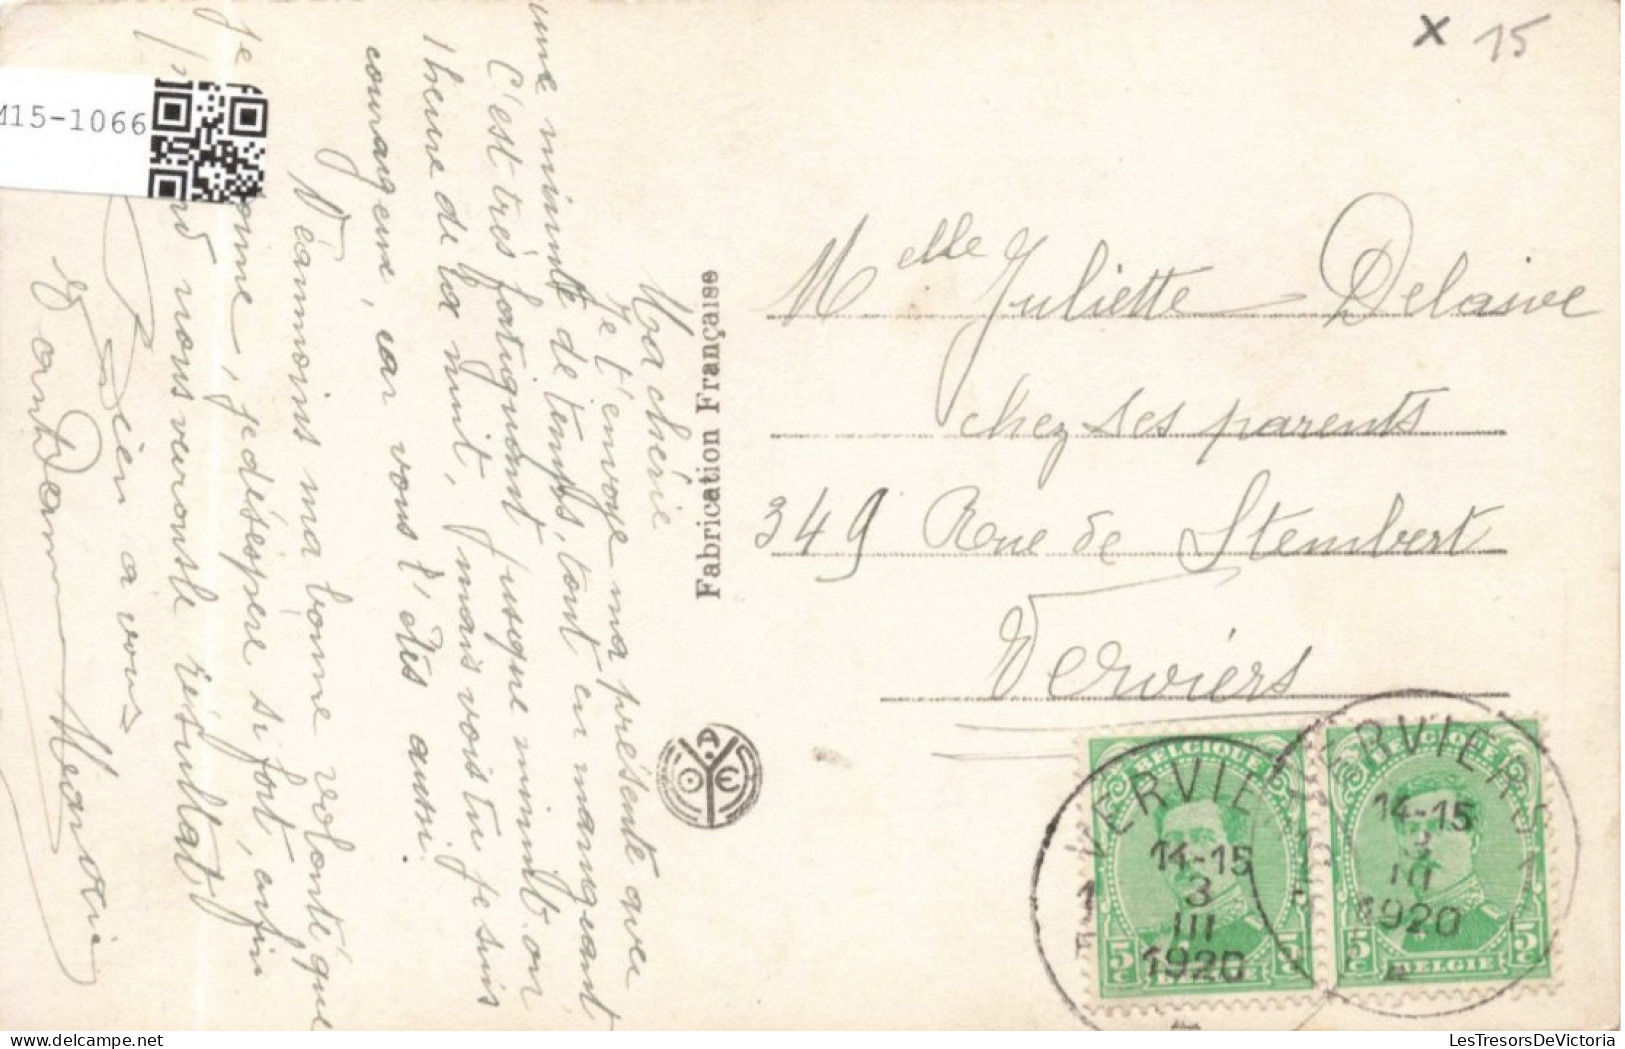 x 15
M15-1066
Ma chérie
Je t'envoye ma présente avec
une minute de temps, tout en mangeant
C'est très fatiguant jusque minuit ou
1 heure de la nuit, mais vois tu je suis
courageux, car vous l'êtes aussi.
Néanmoins ma bonne volonté que
Je , je désespère si fort, enfin
nous verrons le résultat
Bien a vous
Jean
Fabrication Française
A
O E
Melle Juliette Delasse
chez ses parents
349 Rue de Stembert
Verviers
VERVIERS 1
14-15
3
III
1920
VERVIERS 1
14-15
3
III
1920
BELGIQUE
5 c 5 c
BELGIË
BELGIQUE
5 c 5 c
BELGIË
LesTresorsDeVictoria